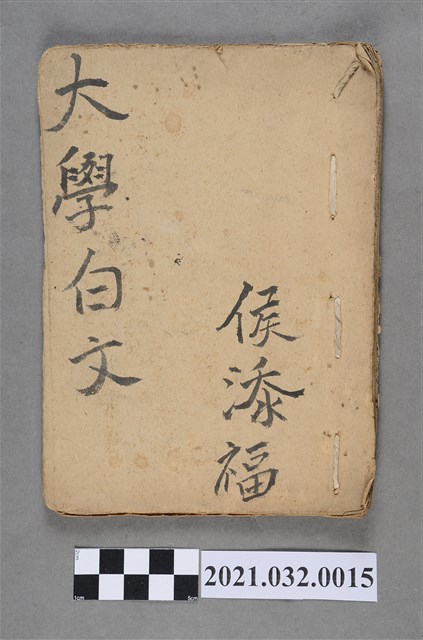 大學白文
侯添福
2021.032.0015
1cm
5cm